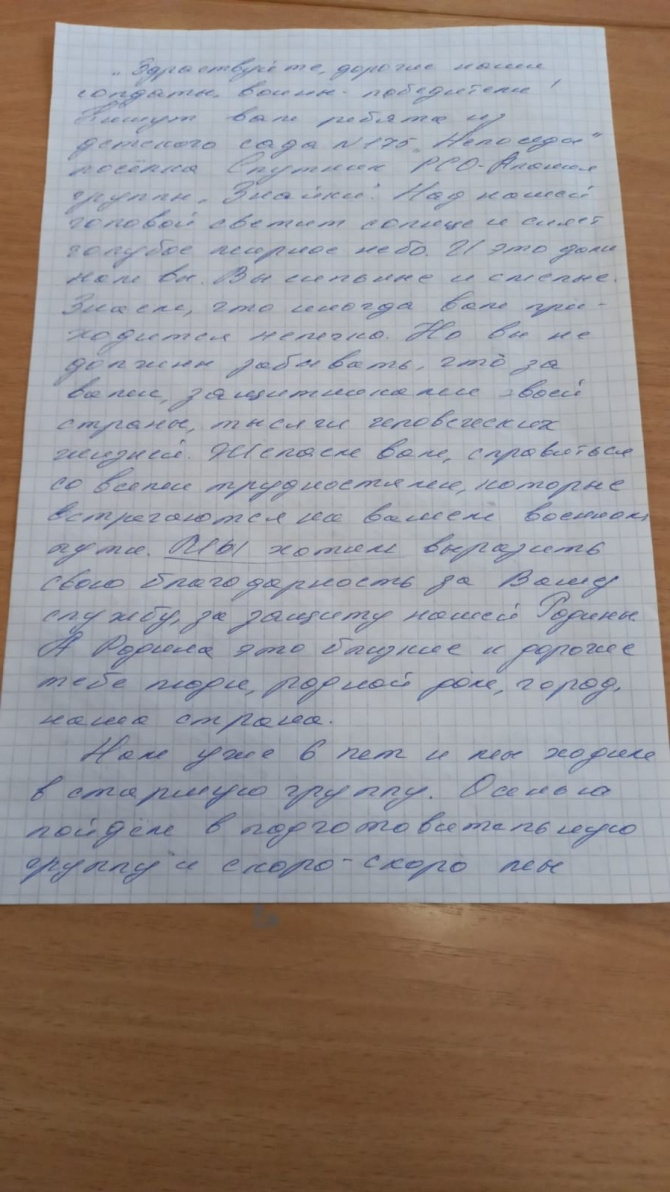 „Здравствуйте, дорогие наши
солдаты, воины - победители!
Пишут вам ребята из
детского сада №175 „Непоседы"
посёлка Спутник РСО-Алания
группы „Знайки". Над нашей
головой светит солнце и сияет
голубое мирное небо. И это дали
нам вы. Вы сильные и смелые.
Знаем, что иногда вам при-
ходится нелегко. Но вы не
должны забывать, что за
вами, защитниками своей
страны, тысячи человеческих
жизней. Желаем вам, справляться
со всеми трудностями, которые
встречаются на вашем военном
пути. Мы хотим выразить
свою благодарность за Вашу
службу, за защиту нашей Родины.
А Родина это близкие и дорогие
тебе люди, родной дом, город,
наша страна.
Нам уже 6 лет и мы ходим
в старшую группу. Осенью
пойдём в подготовительную
группу и скоро-скоро мы